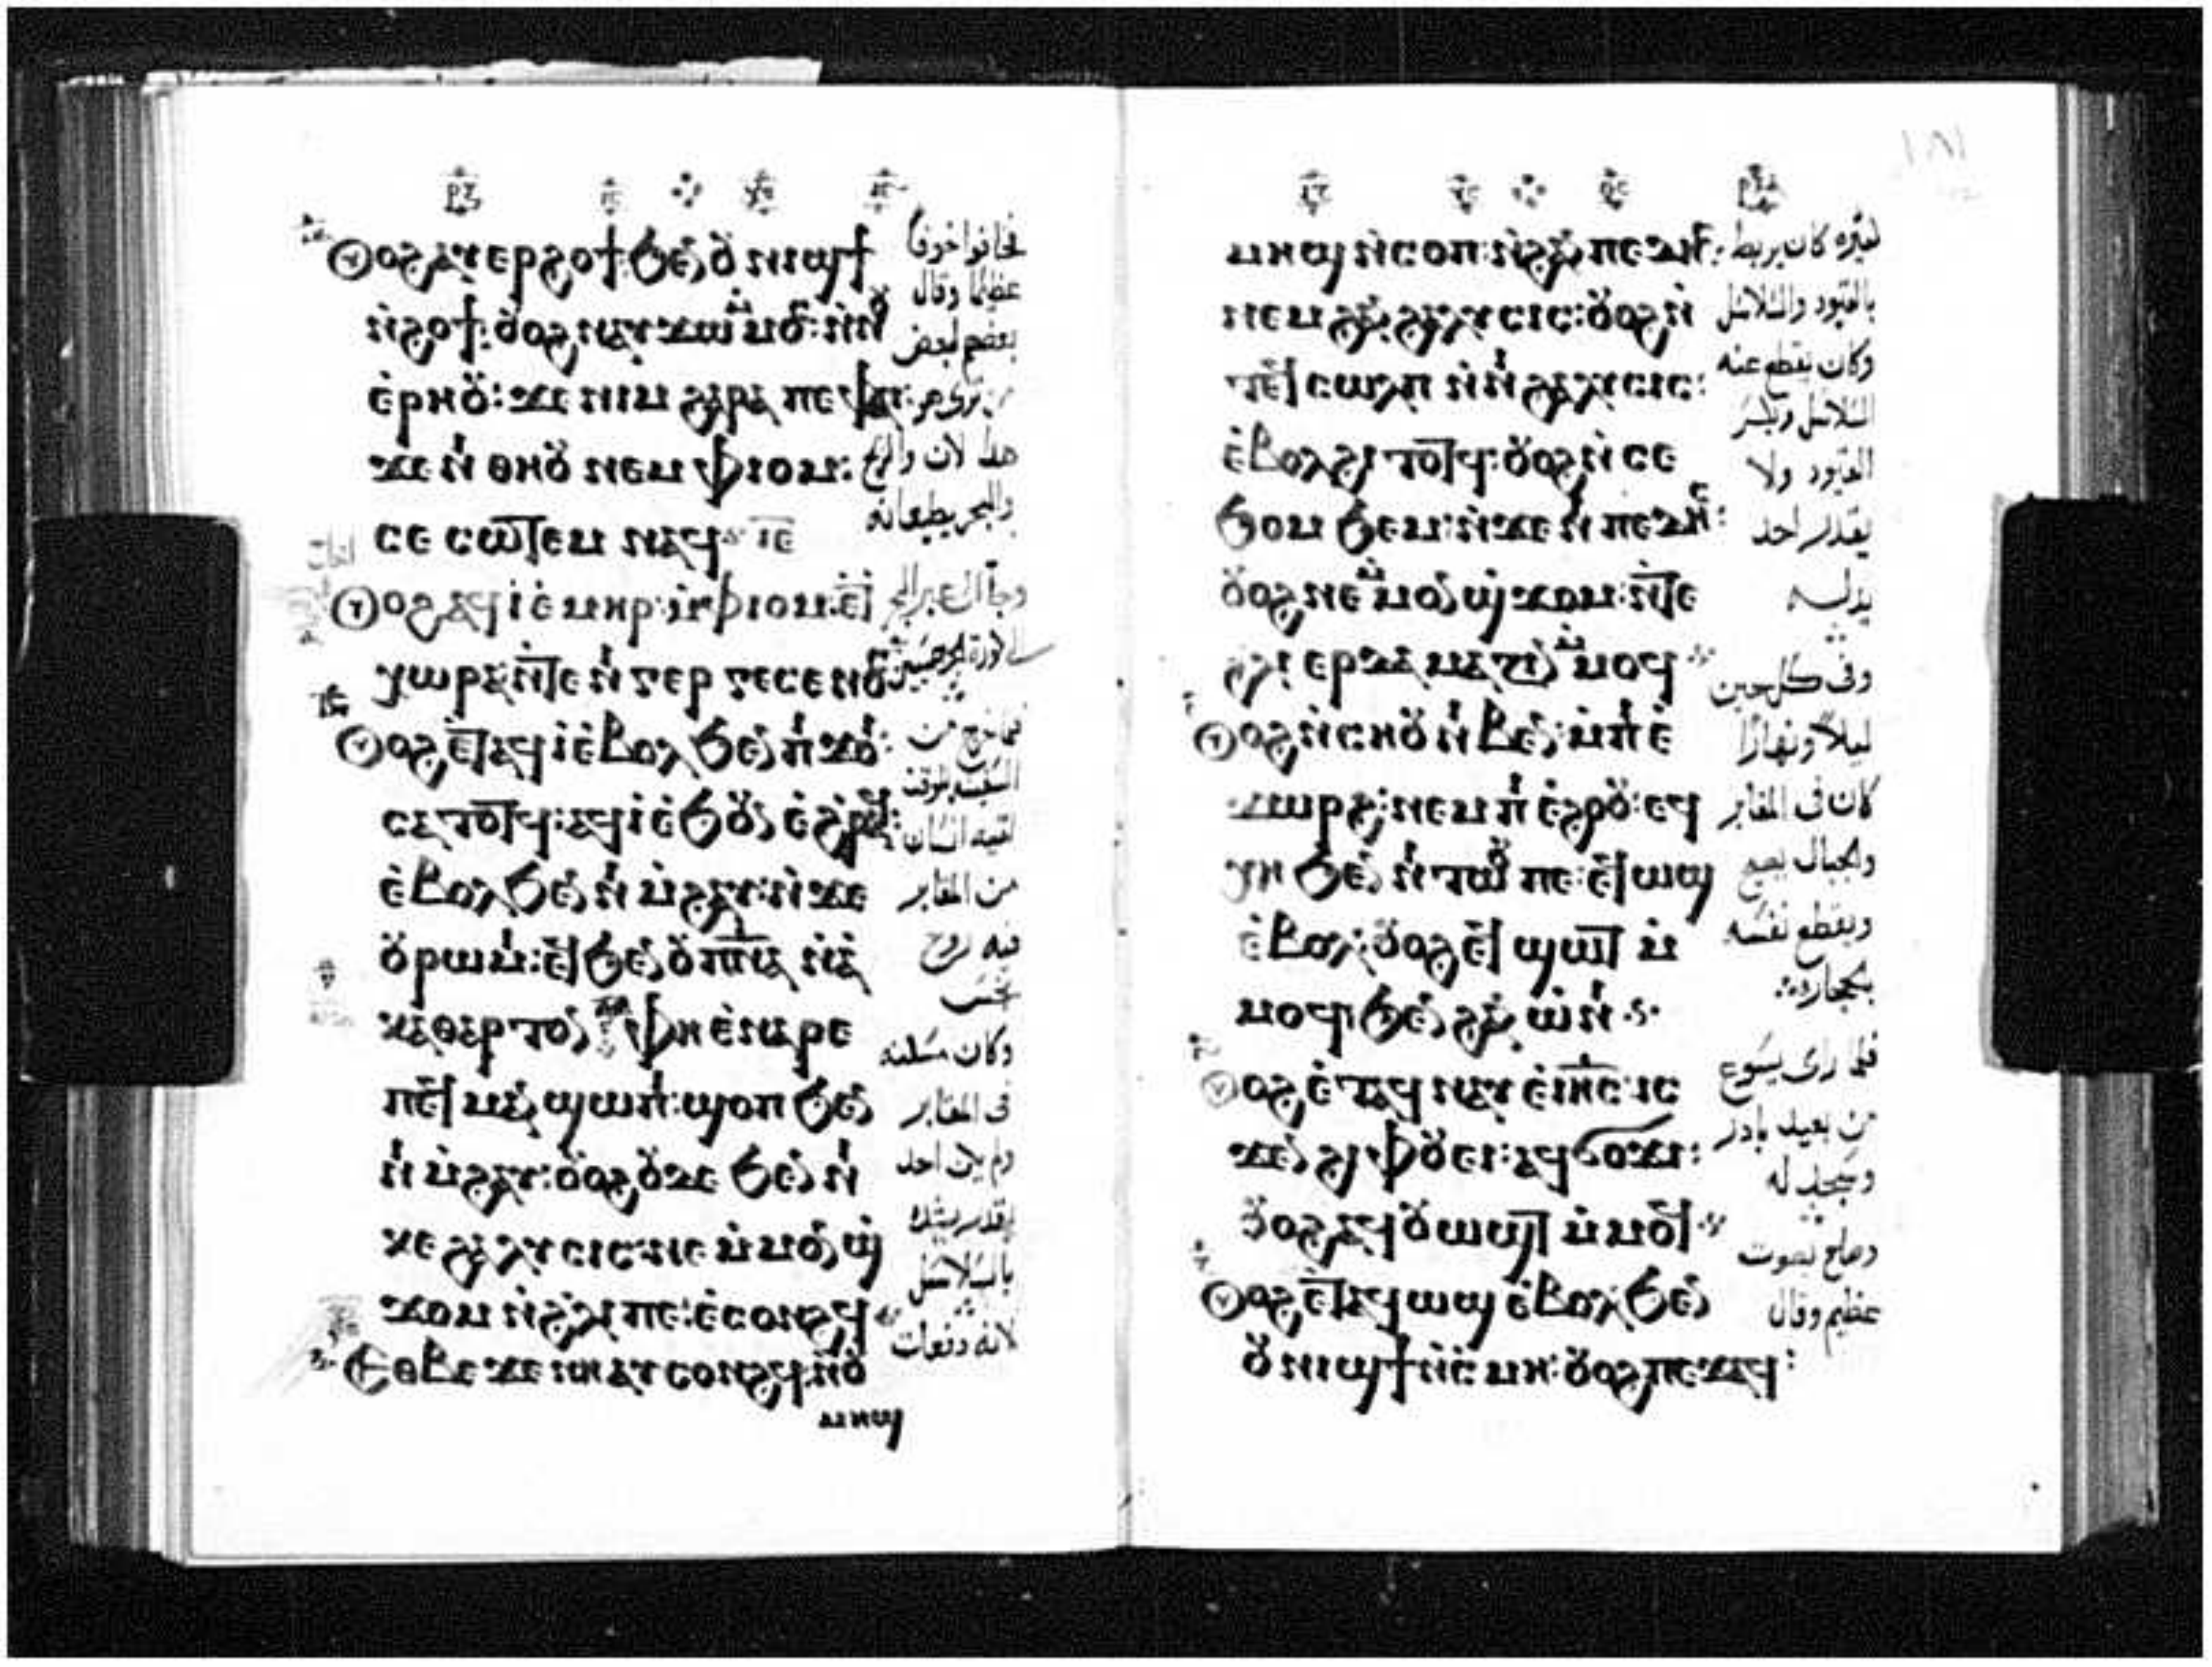 ⲞⲨⲟϩ ⲁⲩⲉⲣϩⲟϯ ϧⲉⲛ ⲟⲩⲛⲓϣϯ
ⲛϩⲟϯ: ⲟⲩⲟϩ ⲛⲁⲩϫⲱ ⲙⲙⲟⲥ: ⲛⲛⲟⲩ
ⲉⲣⲏⲟⲩ: ϫⲉ ⲛⲓⲙ ϩⲁⲣⲁ ⲡⲉ ⲫⲁⲓ:
ϫⲉ ⲛⲓ ⲑⲏⲟⲩ ⲛⲉⲙ ⲫⲓⲟⲙ:
ⲥⲉ ⲥⲱⲧⲉⲙ ⲛⲁϥ
ⲞⲨⲟϩ ⲁϥⲓ ⲉ ⲙⲏⲣ ⲙⲫⲓⲟⲙ: ⲉϯ
ⲭⲱⲣⲁ ⲛⲧⲉ ⲛⲓ ⲅⲉⲣⲅⲉⲥⲉⲛⲟⲥ
ⲞⲨⲟϩ ⲉⲧⲁϥⲓ ⲉⲃⲟⲗ ϧⲉⲛ ⲡⲓ ϫⲟⲓ:
ⲥⲁⲧⲟⲧϥ: ⲁϥⲓ ⲉϧⲟⲩⲛ ⲉϩⲣⲁϥ:
ⲉⲃⲟⲗ ϧⲉⲛ ⲛⲓ ⲙϩⲁⲩ: ⲛϫⲉ
ⲟⲩⲣⲱⲙⲓ: ⲉϥ ϧⲉⲛ ⲟⲩⲡⲛⲁ ⲛⲁ
ⲕⲁⲑⲁⲣⲧⲟⲛ ⲫⲏ ⲉⲛⲁⲣⲉ
ⲡⲉϥ ⲙⲁ ⲛϣⲱⲡⲓ: ϣⲟⲡ ϧⲉⲛ
ⲛⲓ ⲙϩⲁⲩ: ⲟⲩⲟϩ ⲟⲩⲇⲉ ϧⲉⲛ ⲛⲓ
ⲕⲉ ϩⲁⲗⲩⲥⲓⲥ: ⲛⲉ ⲙⲙⲟⲛ ϣ
ϫⲟⲙ ⲛϩⲗⲓ ⲡⲉ: ⲉⲥⲟⲛϩϥ
ⲈⲐⲃⲉ ϫⲉ ⲛⲁⲩⲥⲟⲛϩϥ ⲛⲟⲩ
ⲙⲏϣ
فخافوا خوفا
عظيما وقال
بعضهم لبعض
من ترى هو
هذا لان والريح
والبحر يطيعانه
وجا الى عبر البحر
الى كورة الجرجسيين
فلما خرج من
السفينه للوقت
لقيه انسان
من المقابر
فيه روح
نجس
وكان مسكنه
فى المقابر
ولم يكن احد
يقدر يشده
بالسلاسل
لانه دفعات
ⲙⲏϣ ⲛⲥⲟⲡ: ⲛϩⲁⲛ ⲡⲉⲇⲏⲥ:
ⲛⲉⲙ ϩⲁⲛ ϩⲁⲗⲩⲥⲓⲥ: ⲟⲩⲟϩ ⲛ
ⲧⲉϥ ⲥⲱⲗⲡ ⲛⲛⲓ ϩⲁⲗⲩⲥⲓⲥ:
ⲉⲃⲟⲗ ϩⲓ ⲧⲟⲧϥ: ⲟⲩⲟϩ ⲛ ⲥⲉ
ϧⲟⲙ ϧⲉⲙ: ⲛϫⲉ ⲛⲓ ⲡⲉⲇⲏⲥ:
ⲟⲩⲟϩ ⲛⲉ ⲙⲙⲟⲛ ϣ ϫⲟⲙ: ⲛⲧⲉ
ϩⲗⲓ ⲉⲣⲇⲁⲙⲁⲍⲓⲛ ⲙⲙⲟϥ
ⲞⲨⲟϩ ⲛⲥⲏⲟⲩ ⲛⲓⲃⲉⲛ: ⲙⲡⲓ ⲉ
ϫⲱⲣϩ: ⲛⲉⲙ ⲡⲓ ⲉϩⲟⲟⲩ: ⲉϥ
ⲭⲏ ϧⲉⲛ ⲛⲓ ⲧⲱⲟⲩ ⲡⲉ: ⲉϥ ⲱϣ
ⲉⲃⲟⲗ: ⲟⲩⲟϩ ⲉϥ ϣⲱⲧ ⲙ
ⲙⲟϥ: ϧⲉⲛ ϩⲁⲛ ⲱⲛⲓ
ⲞⲨⲟϩ ⲉⲧⲁϥ ⲛⲁⲩ ⲉⲓⲏⲥ: ⲓⲥ
ϫⲉⲛ ϩⲓ ⲫⲟⲩⲉⲓ: ⲁϥϭⲟϫⲓ:
ⲟⲩⲟϩ ⲁϥⲟⲩⲱϣⲧ ⲙⲙⲟϥ
ⲞⲨⲟϩ ⲉⲧⲁϥⲱϣ ⲉⲃⲟⲗ ϧⲉⲛ
ⲟⲩⲛⲓϣϯ ⲛⲥⲙⲏ: ⲟⲩⲟϩ ⲡⲉϫⲁϥ:
كثيره كان يربط
بالقيود والسلاسل
وكان يقطع عنه
السلاسل ويكسر
القيود ولا
يقدر احد
يذلـله
وفى كل حين
ليلا ونهارا
كان فى المقابر
والجبال يصيح
ويقطع نفسه
بالحجاره
فلما راى يسوع
من بعيد بادر
وسجد له
وصاح بصوت
عظيم وقال